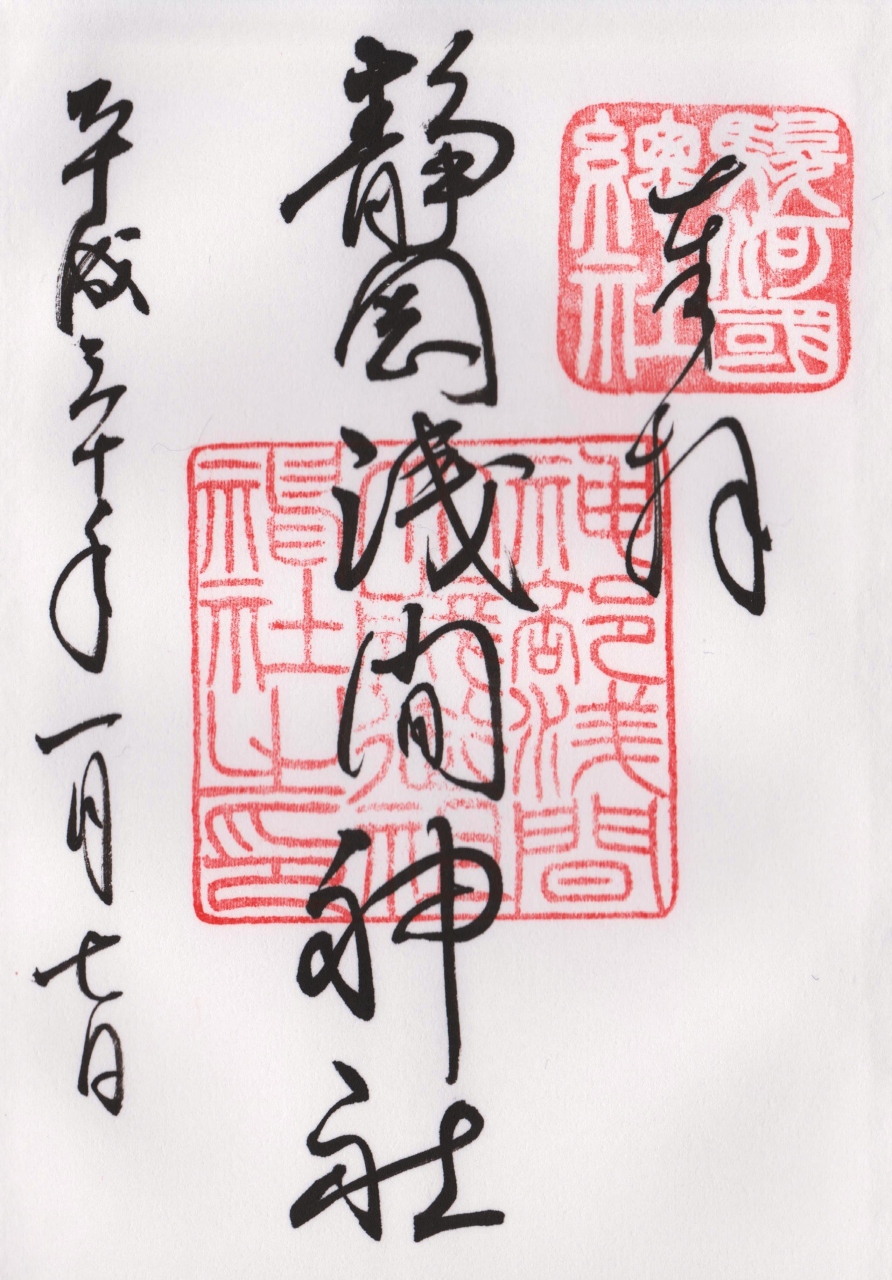 奉拝
駿河國
總社
静岡浅間神社
神部浅間
大歳御祖
神社之印
平成三十年一月七日